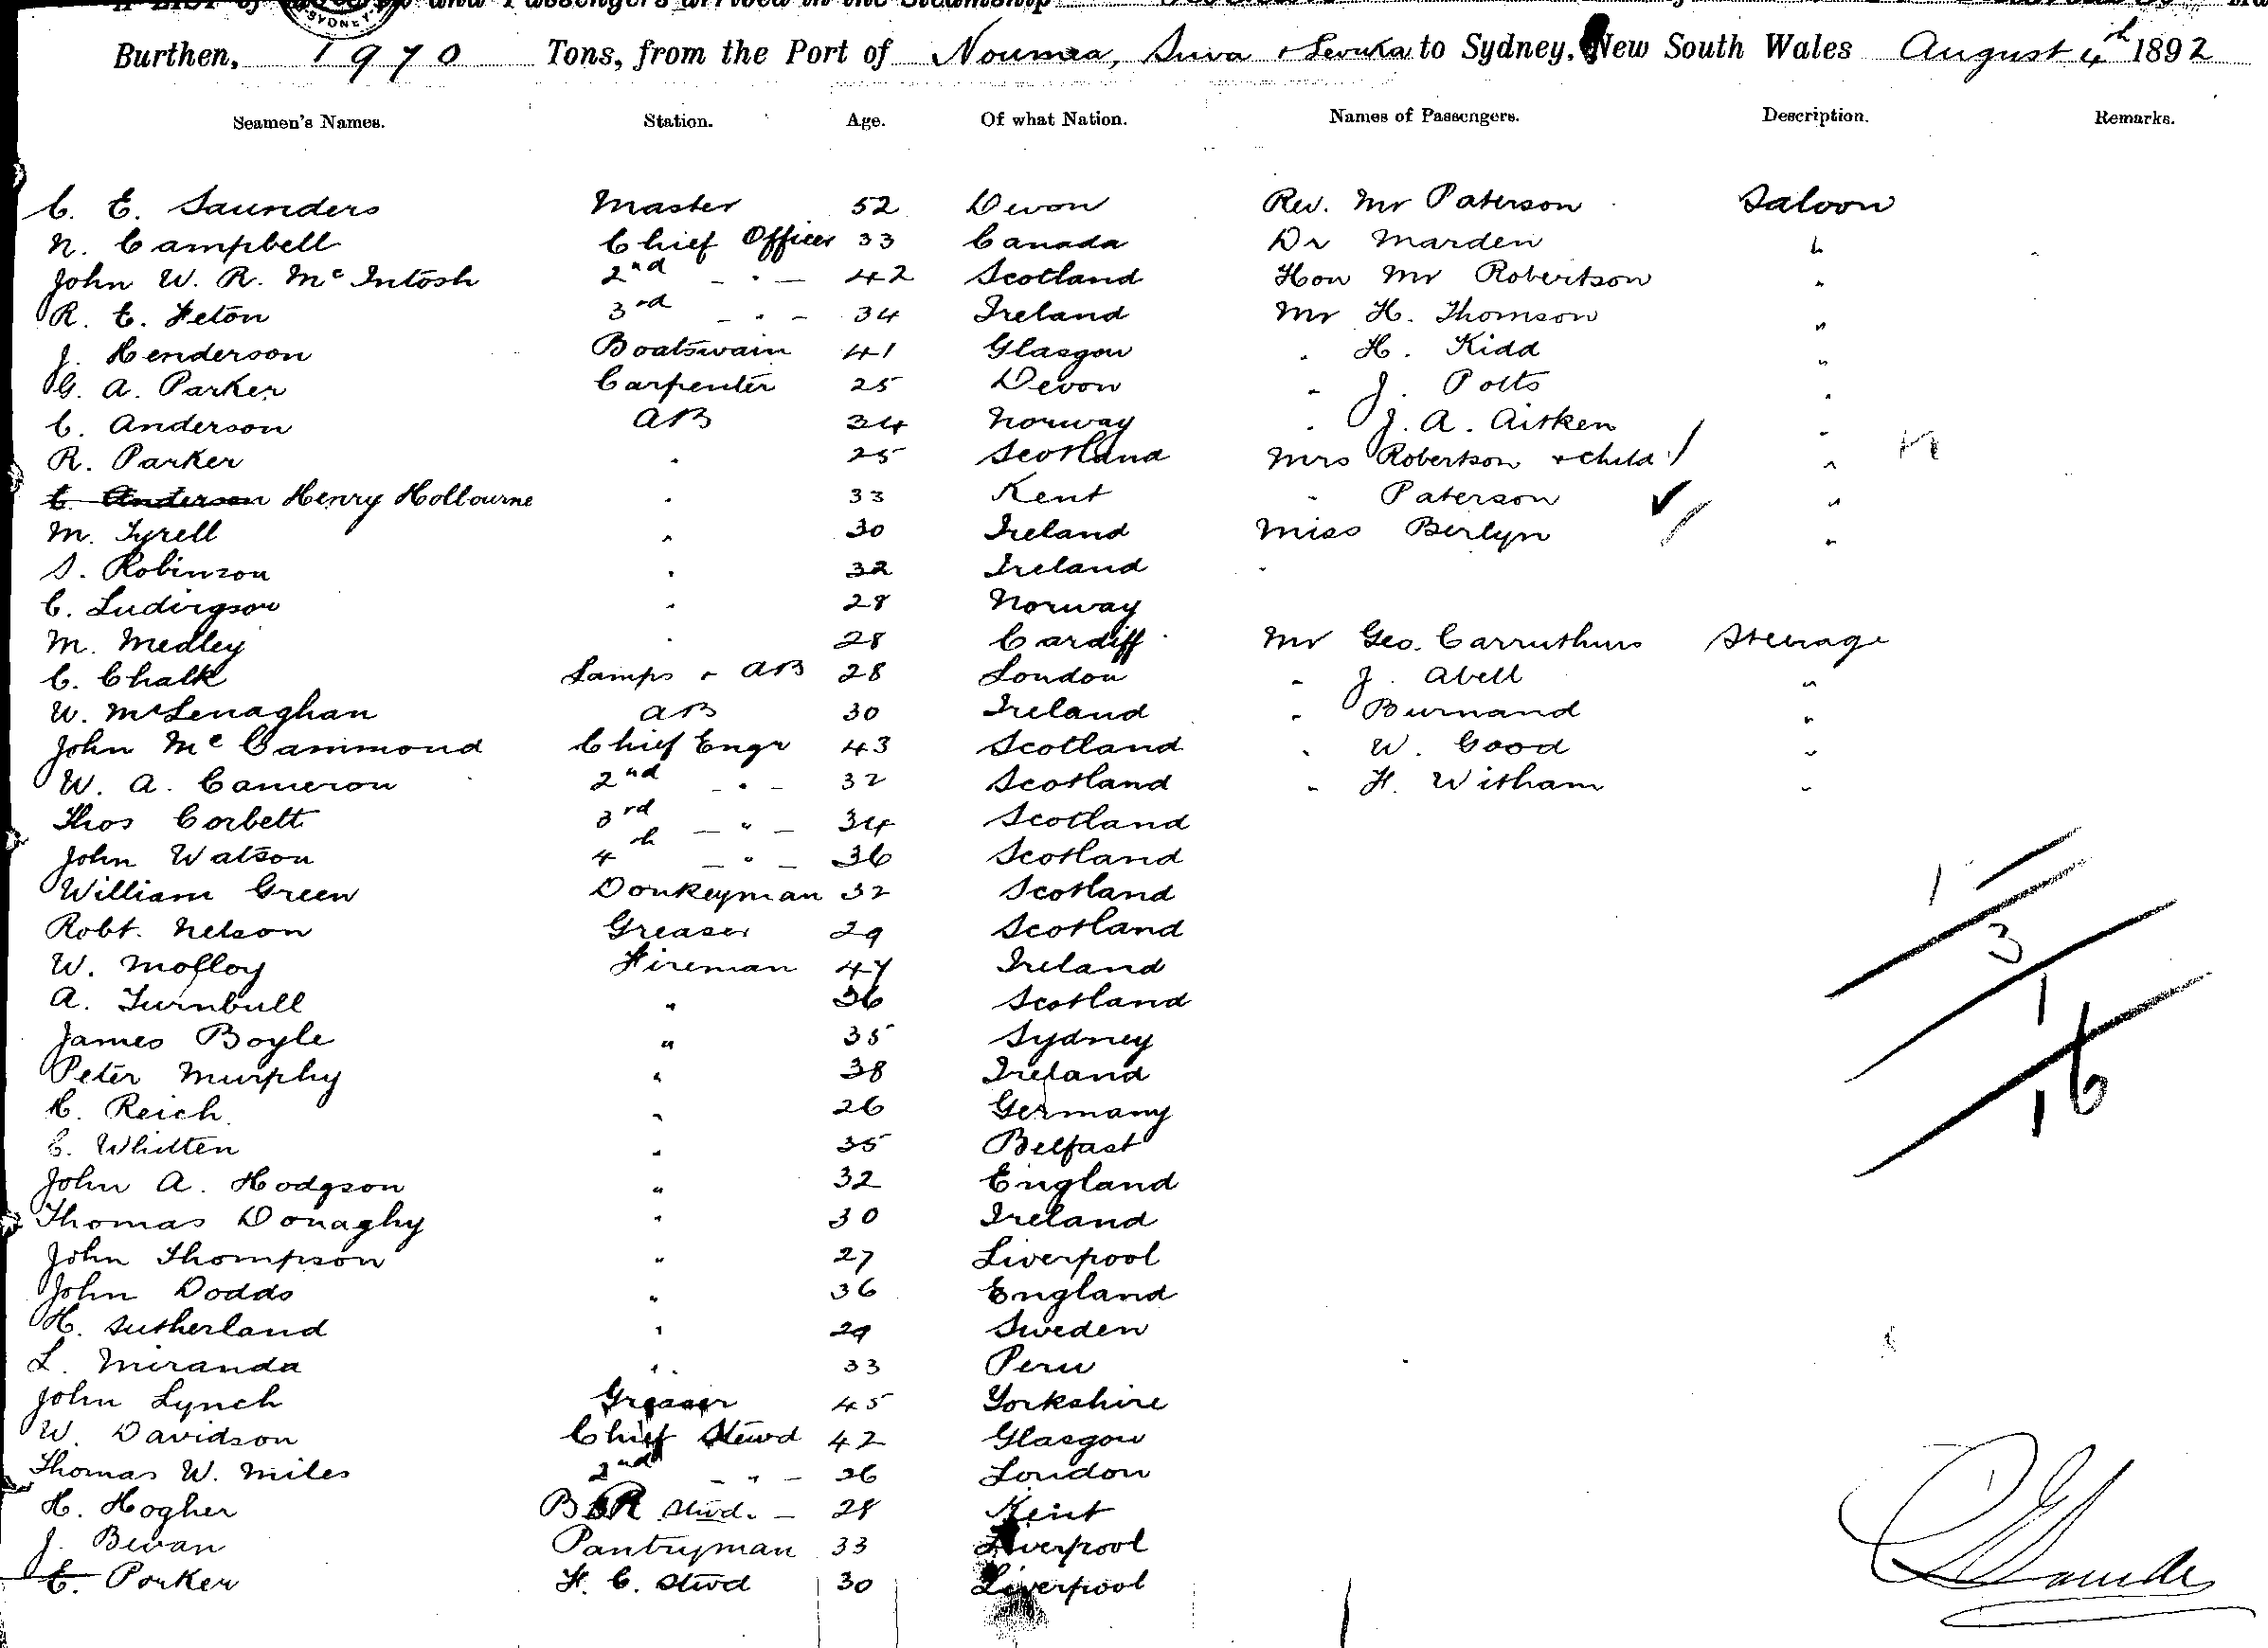 A LIST of and Passengers arrived in the Steamship
SYDNEY
Burthen, 1970 Tons, from the Port of Noumea, Suva & Levuka to Sydney, New South Wales August 4th 1892
Seamen's Names. Station. Age. Of what Nation. Names of Passengers. Description. Remarks.
C. E. Saunders Master 52 Devon Rev. Mr Paterson Saloon
N. Campbell Chief Officer 33 Canada Dr Marden "
John W. R. McIntosh 2nd - " - 42 Scotland Hon Mr Robertson "
R. E. Feton 3rd - " - 34 Ireland Mr H. Thomson "
J. Henderson Boatswain 41 Glasgow " H. Kidd "
G. A. Parker Carpenter 25 Devon " J. Potts "
C. Anderson AB 34 Norway " J. A. Aitken "
R. Parker " 25 Scotland Mrs Robertson & child "
C. Anderson Henry Holbourne " 33 Kent " Paterson "
M. Tyrell " 30 Ireland Miss Berlyn "
S. Robinson " 32 Ireland "
C. Ludirgson " 28 Norway
M. Medley " 28 Cardiff Mr Geo. Carruthers Steerage
C. Chalk Lamps & AB 28 London " J. Abell "
W. McLenaghan AB 30 Ireland " Burnand "
John McCammond Chief Engr 43 Scotland " W. Good "
W. A. Cameron 2nd - " - 32 Scotland " H. Witham "
Thos Corbett 3rd - " - 34 Scotland
John Watson 4th - " - 36 Scotland
William Green Donkeyman 32 Scotland 1
Robt. Nelson Greaser 29 Scotland 3
W. Molloy Fireman 47 Ireland
A. Turnbull " 36 Scotland 1
James Boyle " 35 Sydney
Peter Murphy " 38 Ireland 16
H. Reich " 26 Germany
C. Whitten " 35 Belfast
John A. Hodgson " 32 England
Thomas Donaghy " 30 Ireland
John Thompson " 27 Liverpool
John Dodds " 36 England
H. Sutherland " 29 Sweden
L. Miranda " 33 Peru
John Lynch Greaser 45 Yorkshire
W. Davidson Chief Stewd 42 Glasgow
Thomas W. Miles 2nd - " - 26 London
H. Hogher Stwd. - 28 Kent
J. Bevan Pantryman 33 Liverpool
E. Porker F. C. Stwd 30 Liverpool